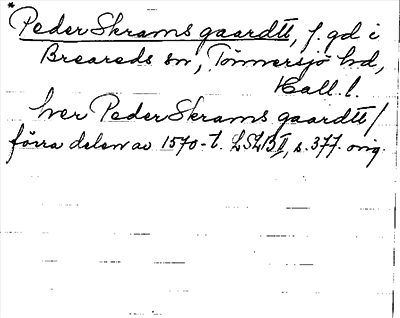 * Peder Skrams gaardtt, f. gd i
Breareds sn, Tönnersjö hd,
Hall. l.
hver Peder Skrams gaardtt /
förra delen av 1570-t. LSLBII, s. 377. orig.